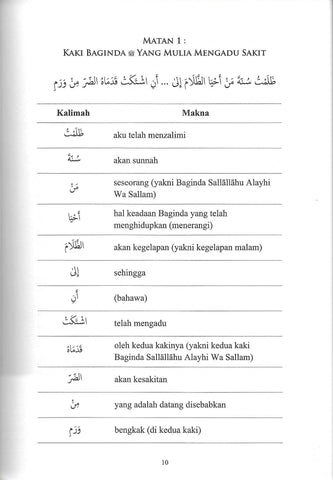 MATAN 1 :
KAKI BAGINDA ﷺ YANG MULIA MENGADU SAKIT
ظَلَمْتُ سُنَّةَ مَنْ أَحْيَا الظَّلَامَ إِلَى ... أَنِ اشْتَكَتْ قَدَمَاهُ الضُّرَّ مِنْ وَرَمِ
Kalimah Makna
ظَلَمْتُ aku telah menzalimi
سُنَّةَ akan sunnah
مَنْ seseorang (yakni Baginda Sallallāhu Alayhi
Wa Sallam)
أَحْيَا hal keadaan Baginda yang telah
menghidupkan (menerangi)
الظَّلَامَ akan kegelapan (yakni kegelapan malam)
إِلَى sehingga
أَنِ (bahawa)
اشْتَكَتْ telah mengadu
قَدَمَاهُ oleh kedua kakinya (yakni kedua kaki
Baginda Sallallāhu Alayhi Wa Sallam)
الضُّرَّ akan kesakitan
مِنْ yang adalah datang disebabkan
وَرَمِ bengkak (di kedua kaki)
10